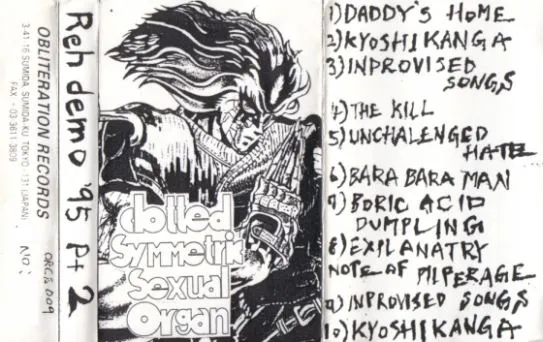 OBLITERATION RECORDS
3-41-16 SUMIDA, SUMIDA-KU, TOKYO - 131 (JAPAN)
FAX - 03 3611 3809
ORCS 009
NO:
Reh demo '95 pt 2
dotted
Symmetric
Sexual
Organ
1) DADDY'S HOME
2) KYOSHI KANGA
3) INPROVISED
SONGS
4) THE KILL
5) UNCHALENGED
HATE
6) BARA BARA MAN
7) BORIC ACID
DUMPLING
8) EXPLANATRY
NOTE AF PILPERAGE
9) INPROVISED SONGS
10) KYOSHI KANGA